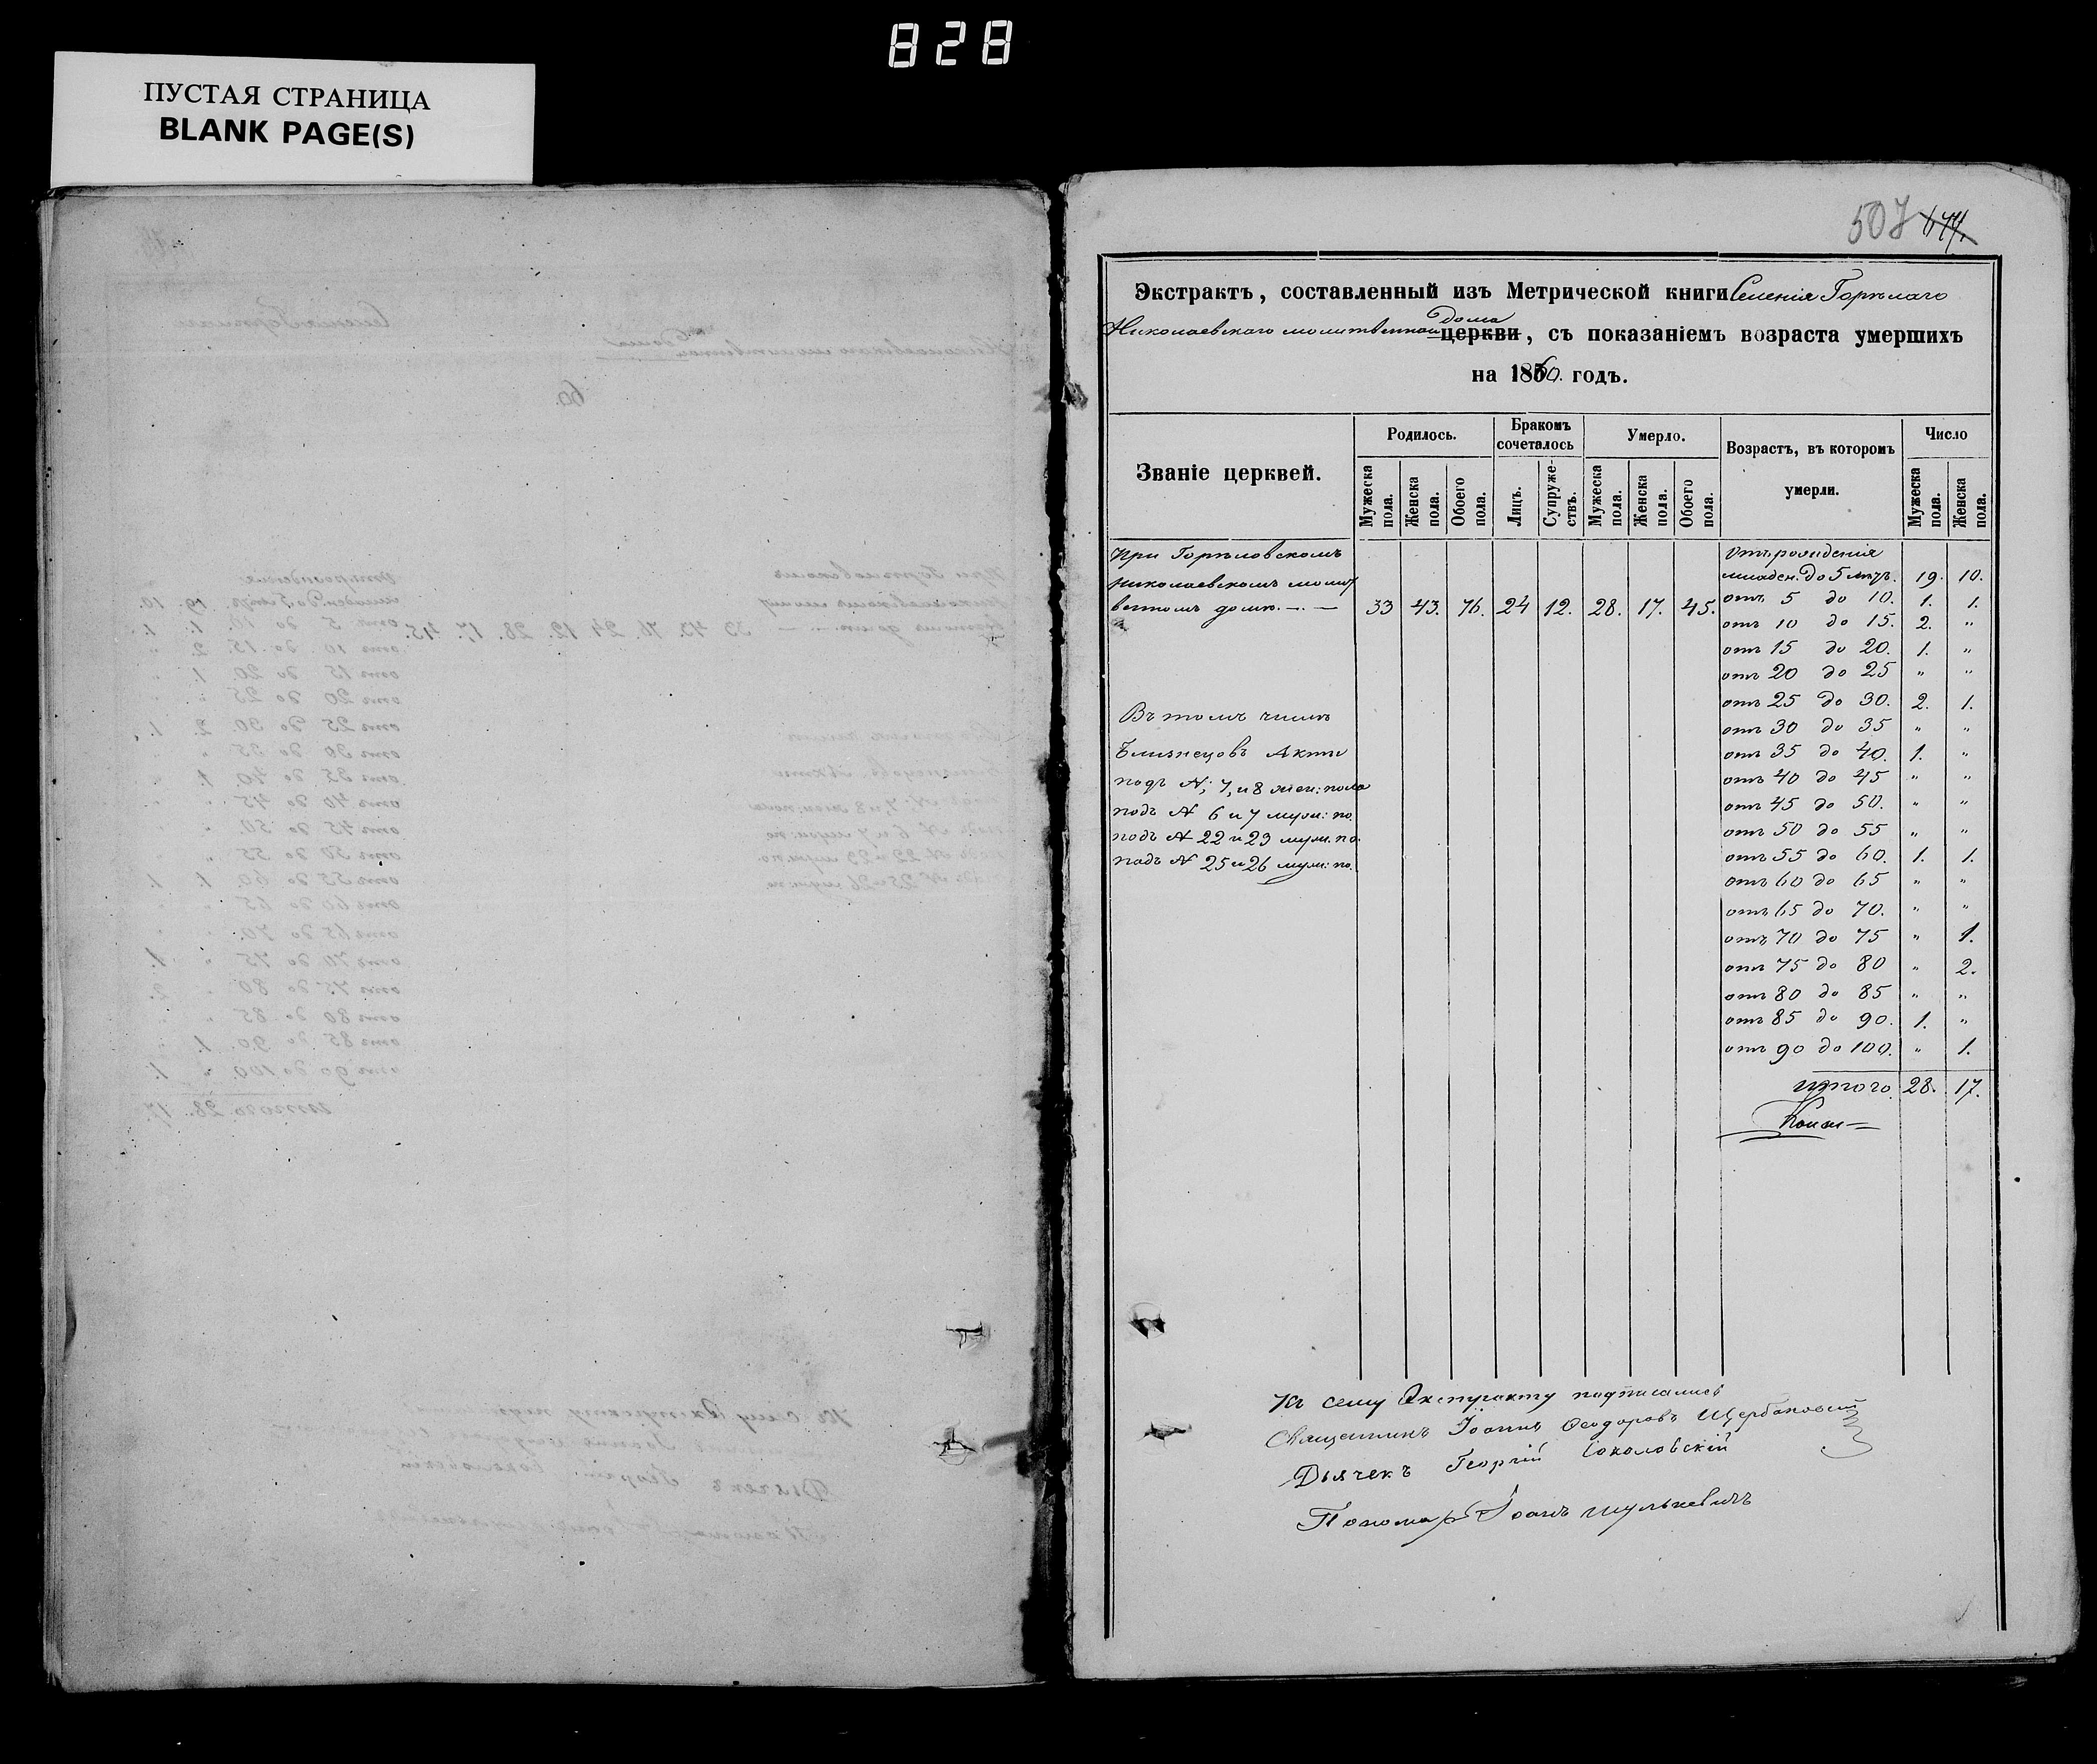 828
ПУСТАЯ СТРАНИЦА
BLANK PAGE(S)
507 674.
Экстрактъ, составленный изъ Метрической книги Селенія Горѣлаго
Николаевскаго молитвеннаго дома церкви, съ показаніемъ возраста умершихъ
на 1860. годъ.
Званіе церквей.
Родилось.
Бракомъ сочеталось
Умерло.
Возрастъ, въ которомъ умерли.
Число
Мужеска пола. Женска пола. Обоего пола. Лицъ. Супружествъ. Мужеска пола. Женска пола. Обоего пола. Мужеска пола. Женска пола.
При Горѣловскомъ
Николаевскомъ молит
венномъ домѣ. — 33 43. 76. 24 12. 28. 17. 45.
Въ томъ числѣ
Близнецовъ Акты
подъ №, 7, и 8 жен: пола
подъ № 6 и 7 муж: по.
подъ № 22 и 23 муж. по.
подъ № 25 и 26 муж: по.
отъ рожденія
младен. до 5 лѣтъ. 19. 10.
отъ 5 до 10. 1. 1.
отъ 10 до 15. 2. "
отъ 15 до 20. 1. "
отъ 20 до 25 " "
отъ 25 до 30. 2. 1.
отъ 30 до 35 " "
отъ 35 до 40. 1. "
отъ 40 до 45 " "
отъ 45 до 50. " "
отъ 50 до 55 " "
отъ 55 до 60. 1. 1.
отъ 60 до 65 " "
отъ 65 до 70. " "
отъ 70 до 75 " 1.
отъ 75 до 80 " 2.
отъ 80 до 85 " "
отъ 85 до 90. 1. "
отъ 90 до 100. " 1.
итого 28. 17.
Къ сему Экстракту подписались
Священникъ Іоаннъ Феодоровъ Щербаковскій
Дьячекъ Георгій Соколовскій
Пономарь Іоанъ Шулькевичъ